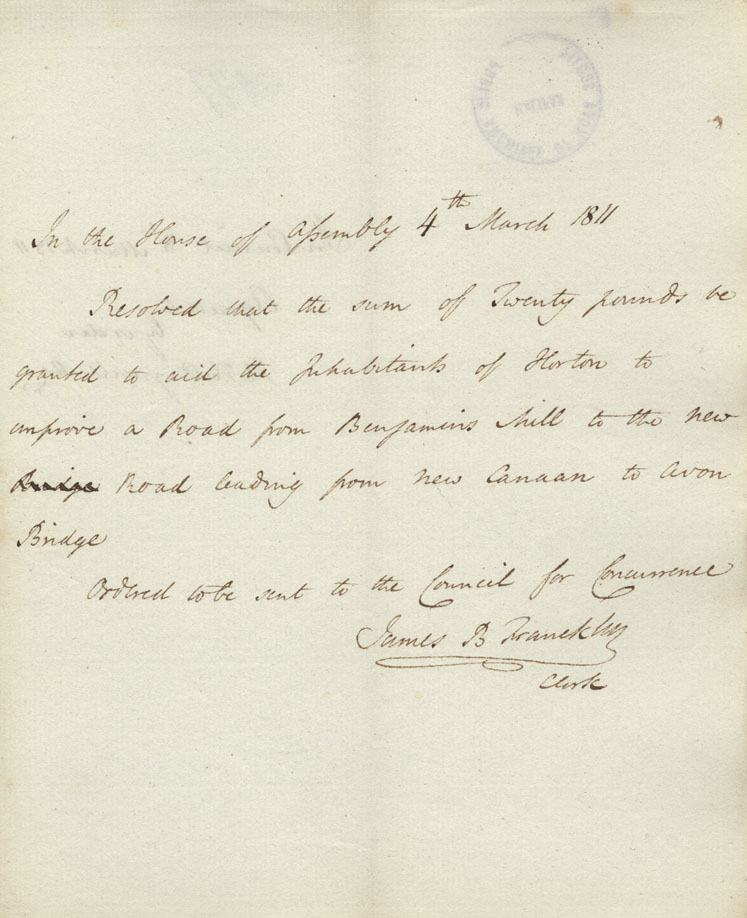 PUBLIC ARCHIVES OF NOVA SCOTIA
HALIFAX
In the House of Assembly 4th March 1811
Resolved that the sum of Twenty pounds be
granted to aid the Inhabitants of Horton to
improve a Road from Benjamins Mill to the new
Bridge Road leading from new Canaan to Avon
Bridge
Ordered to be sent to the Council for Concurrence
James B Francklin
Clerk